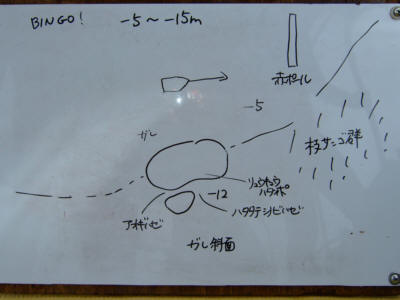 BINGO! -5～-15m
赤ポール
-5
ガレ
枝サンゴ群
リュウキュウ
ハタンポ
-12
アオギハゼ
ハタタテシノビハゼ
ガレ斜面